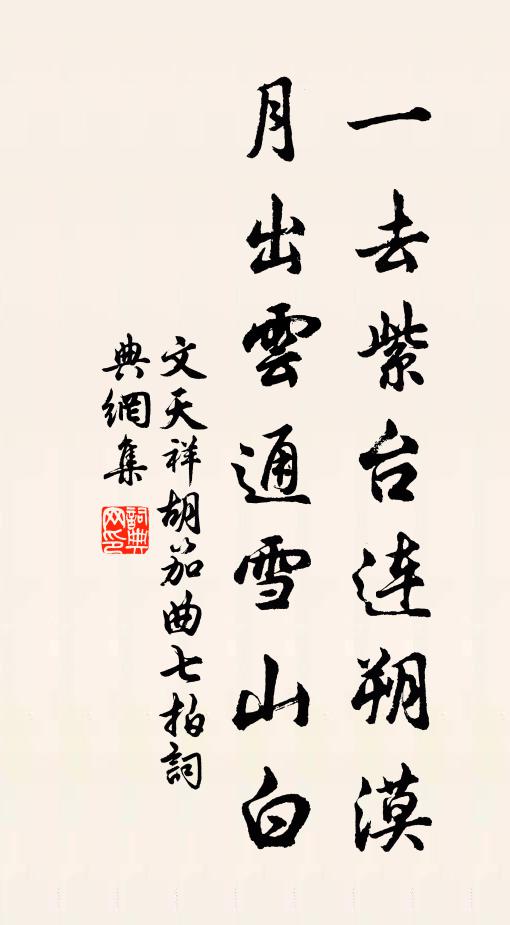 一去紫台連朔漠
月出雲通雪山白
文天祥胡笳曲七拍詞
典網集
詞典網印